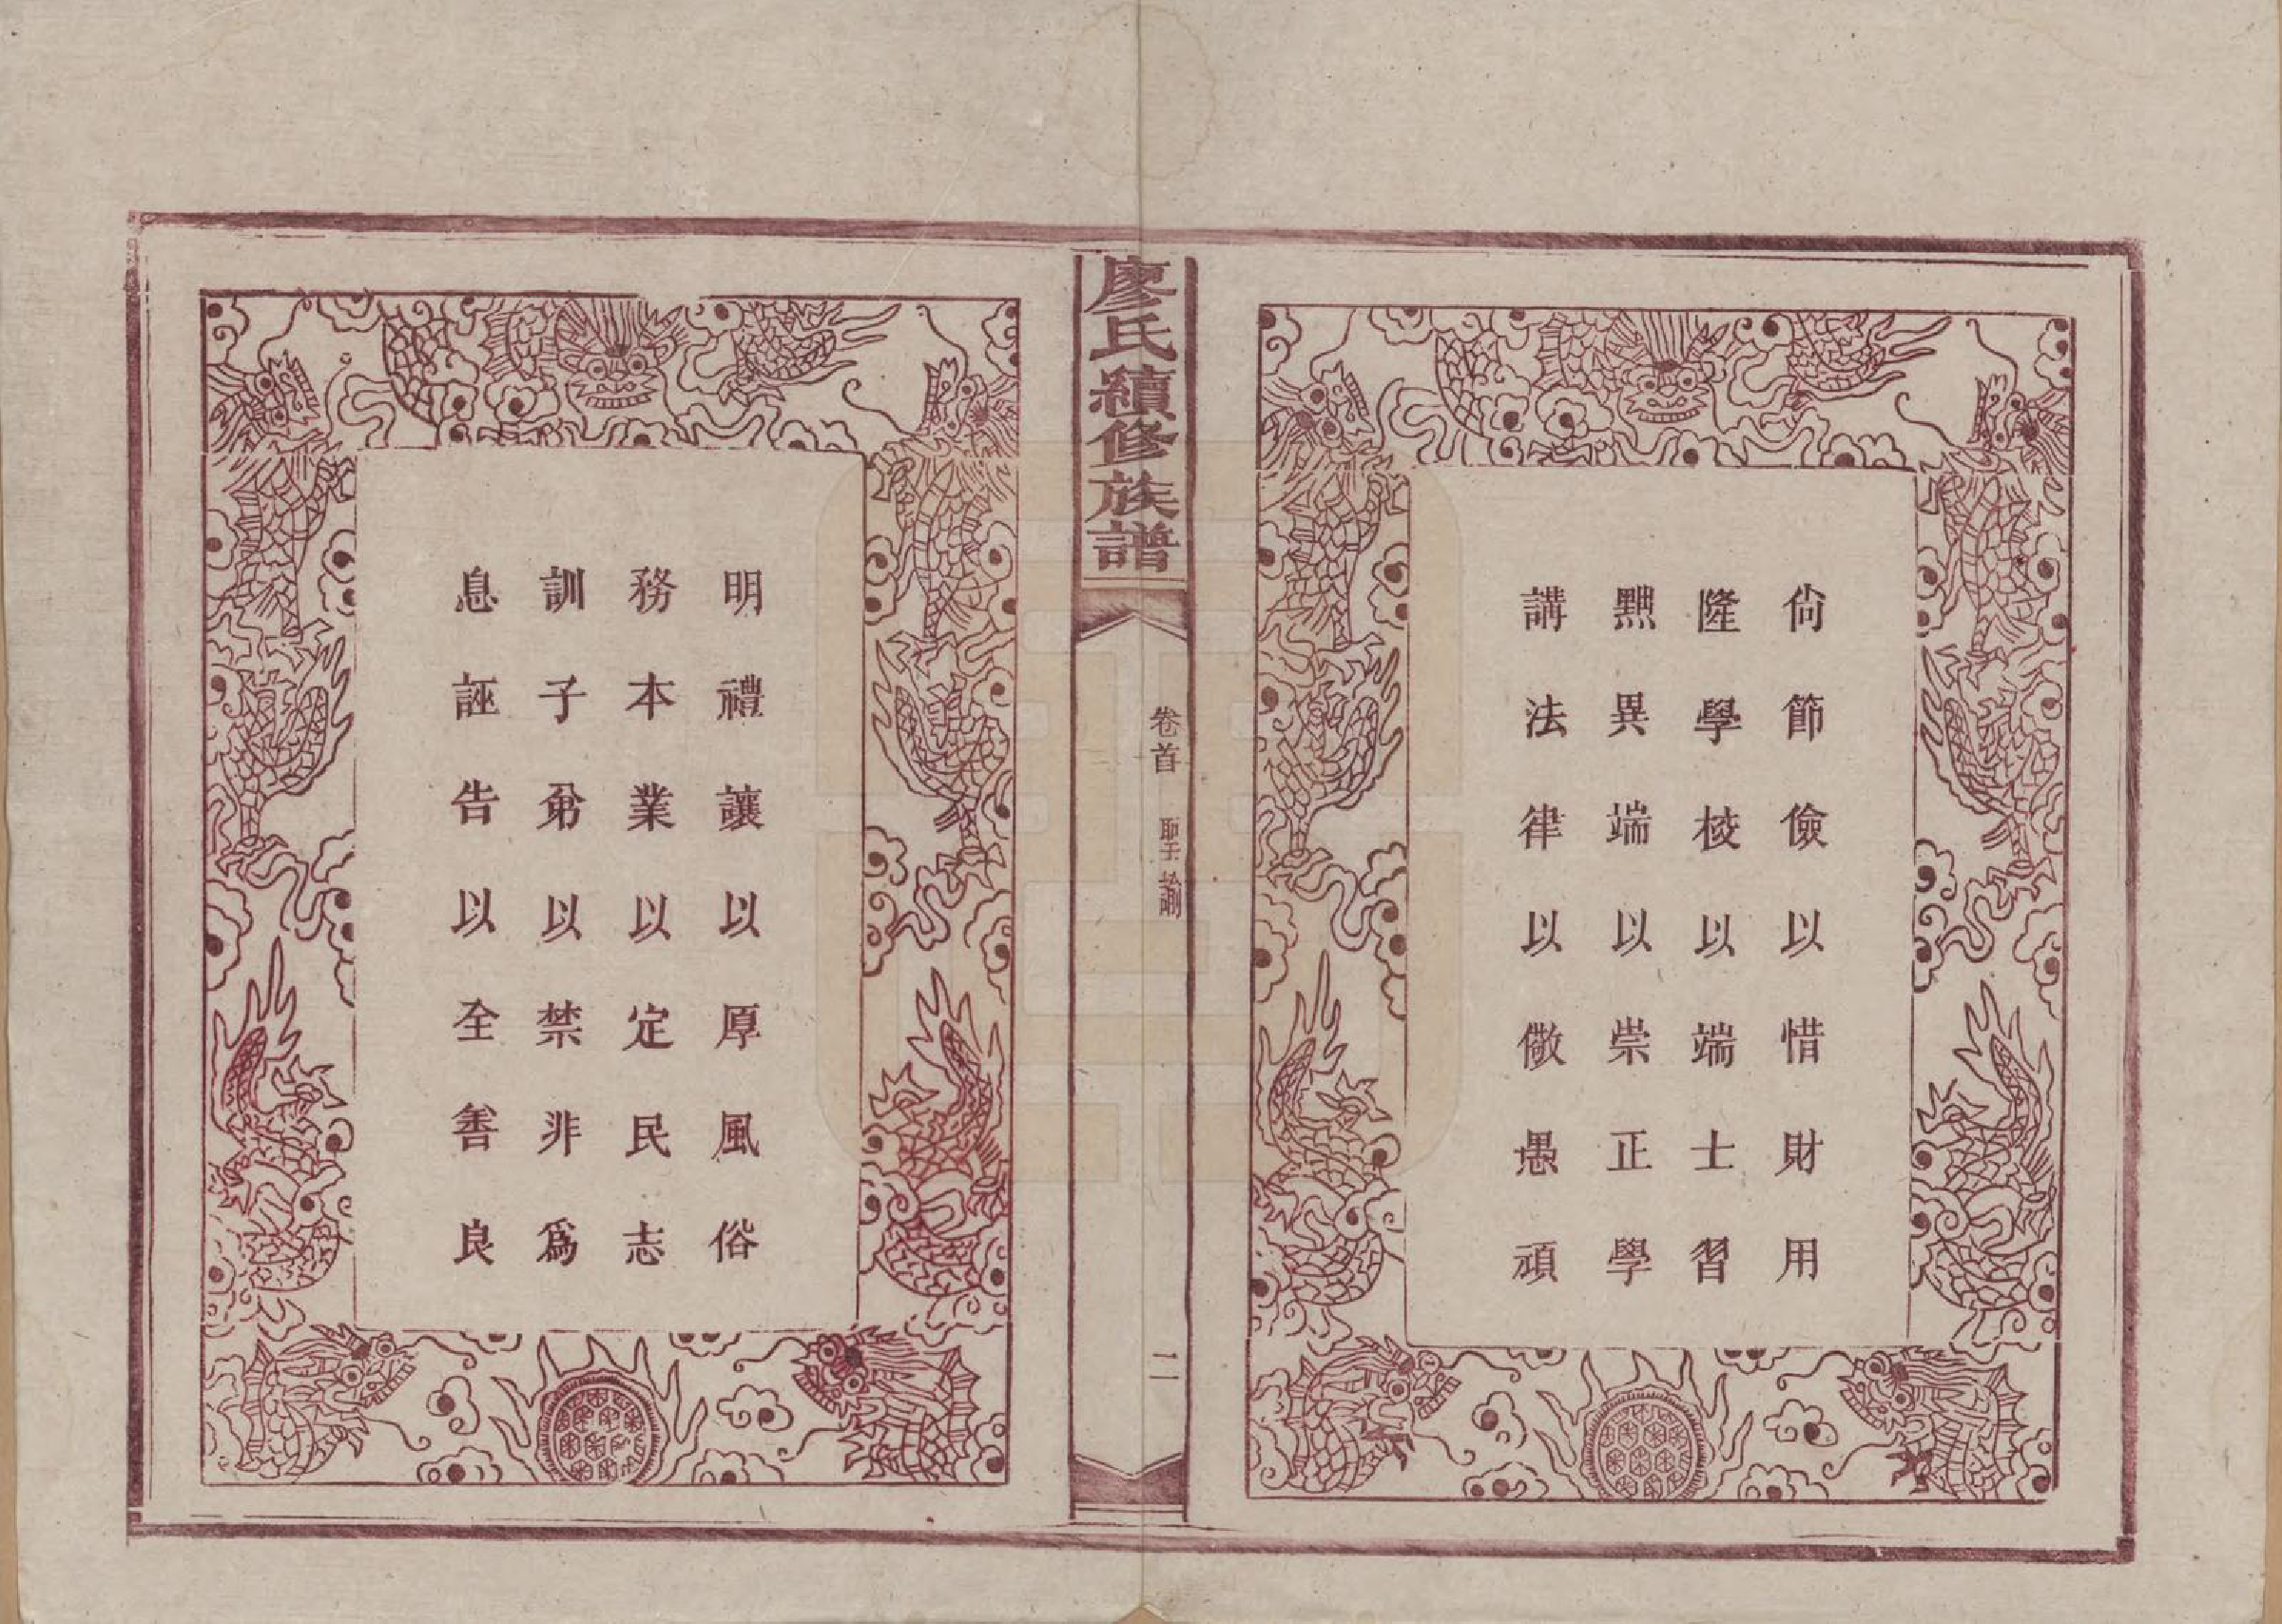 尙節儉以惜財用
隆學校以端士習
黜異端以崇正學
講法律以儆愚頑
廖氏續修族譜
卷首 聖諭
二
明禮讓以厚風俗
務本業以定民志
訓子弟以禁非爲
息誣告以全善良